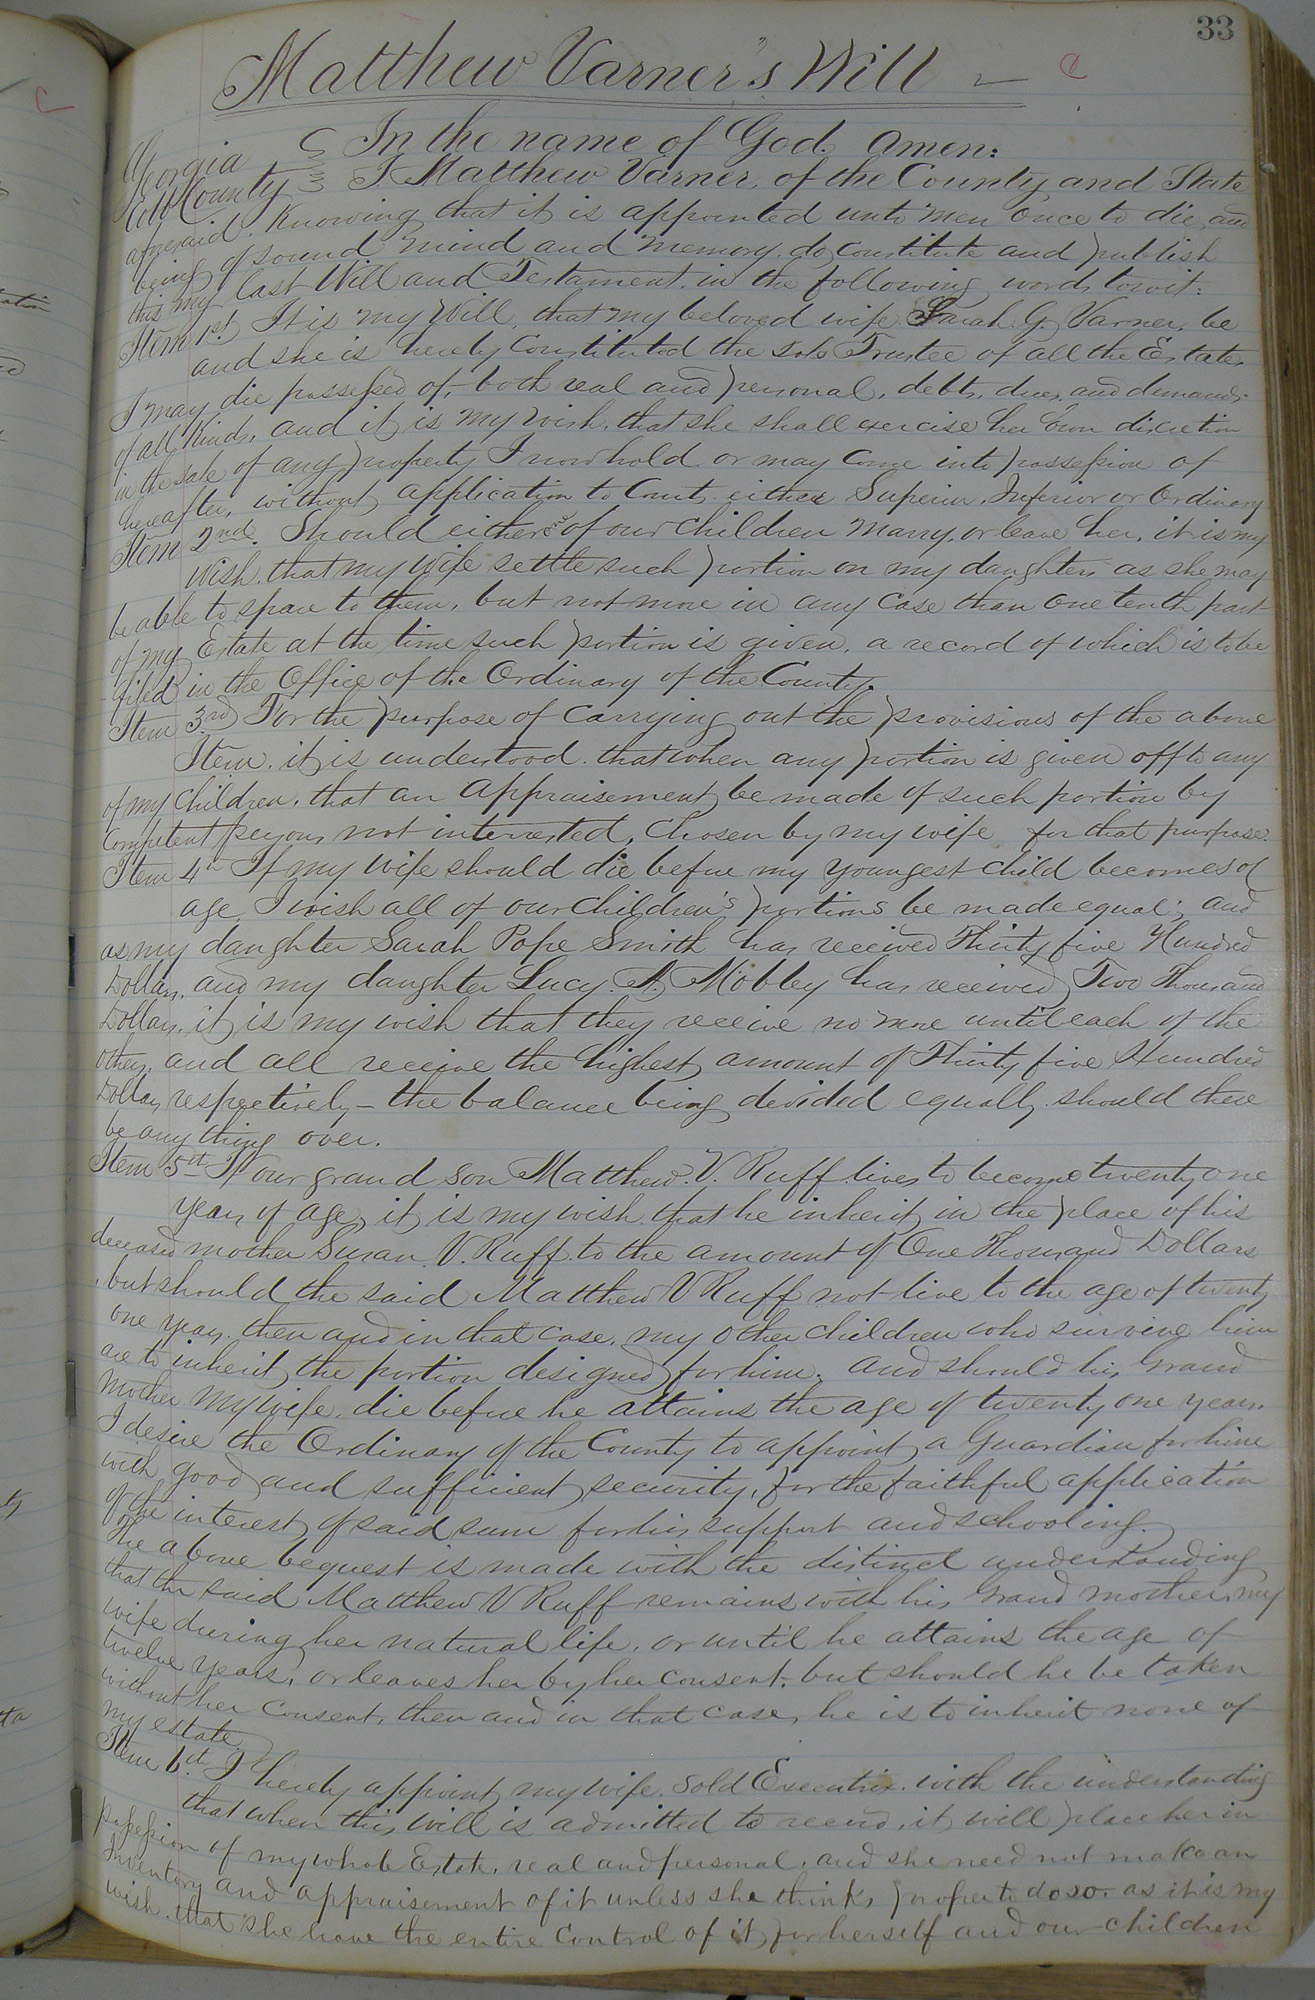 33
Matthew Varner's Will
Georgia
Cobb County
In the name of God Amen:
I Matthew Varner, of the County and State
aforesaid. Knowing that it is appointed unto men once to die, and
being of sound mind and memory, do constitute and publish
this my last Will and Testament, in the following words towit:
Item 1st. It is my Will, that my beloved wife Sarah G. Varner, be
and she is hereby constituted the sole Trustee of all the Estate
I may die possessed of, both real and personal, debts, dues, and demands
of all kinds, and it is my wish, that she shall exercise her own discretion
in the sale of any property I now hold or may come into possession of
hereafter, without application to Courts either Superior, Inferior or Ordinary
Item 2nd. Should either of our children marry, or leave her, it is my
wish, that my wife settle such portion on my daughters as she may
be able to spare to them, but not more in any case than one tenth part
of my Estate at the time such portion is given, a record of which is to be
filed in the Office of the Ordinary of the County.
Item 3rd For the purpose of carrying out the provisions of the above
Item, it is understood, that when any portion is given off to any
of my children, that an appraisement be made of such portion by
competent persons not interested, chosen by my wife for that purpose.
Item 4th If my wife should die before my youngest child becomes of
age, I wish all of our children's portions be made equal; and
as my daughter Sarah Pope Smith has received Thirty five Hundred
Dollars, and my daughter Lucy A. Mobley has received Two Thousand
Dollars, it is my wish that they receive no more until each of the
others, and all receive the highest amount of Thirty five Hundred
Dollars respectively – the balance being devided equally should there
be any thing over.
Item 5th If our grand son Matthew V. Ruff lives to become twenty one
years of age, it is my wish that he inherit in the place of his
deceased mother Susan V. Ruff to the amount of One Thousand Dollars
but should the said Matthew V Ruff not live to the age of twenty
one years, then and in that case, my other children who survive him
are to inherit the portion designed for him, and should his Grand
Mother, my wife, die before he attains the age of twenty one years,
I desire the Ordinary of the County to appoint a Guardian for him
with good and sufficient security, for the faithful application
of the interest of said sum for his support and schooling.
The above bequest is made with the distinct understanding
that the said Matthew V Ruff remains with his Grand mother, my
wife during her natural life, or until he attains the age of
twelve years, or leaves her by her consent, but should he be taken
without her consent, then and in that case, he is to inherit none of
my estate.
Item 6th. I hereby appoint my wife, sold Executrix, with the understanding
that when this Will is admitted to record, it will place her in
possession of my whole Estate, real and personal, and she need not make an
Inventory and appraisement of it unless she thinks proper to do so, as it is my
wish, that she have the entire control of it for herself and our children